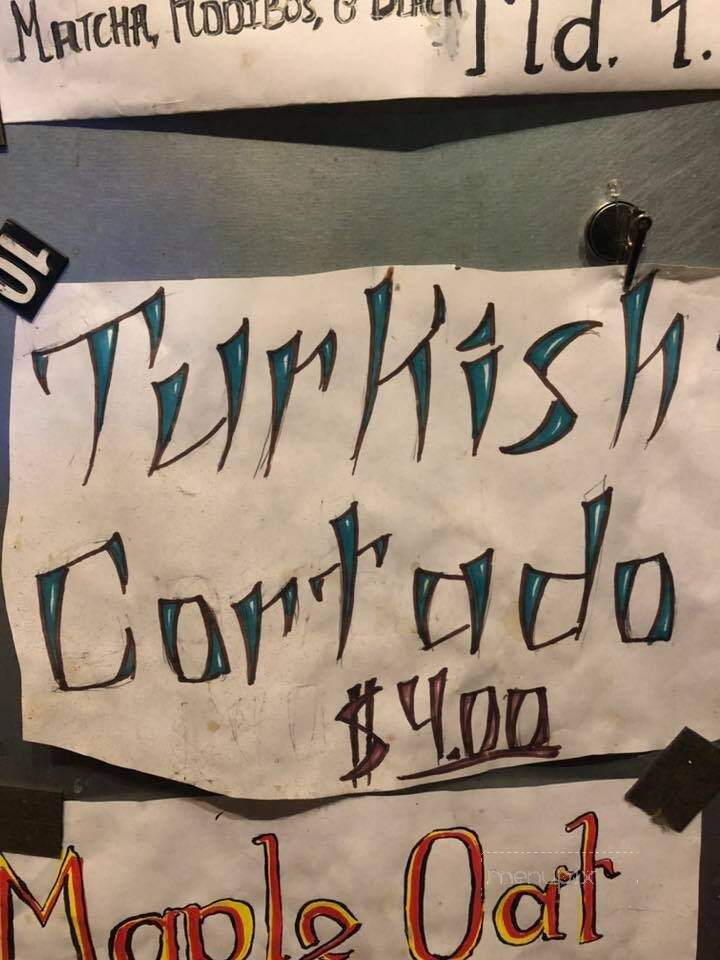 MATCHA, ROOIBOS, & BLACK
Md. 4.
10
Turkish
Cortado
$4.00
Maple Oat
menupix